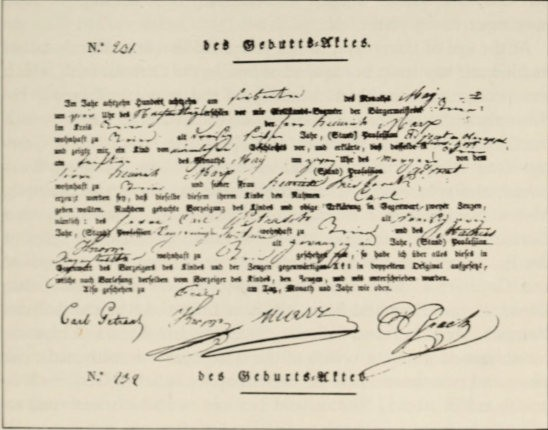 N.º 231. des Geburts-Aktes.
Im Jahr achtzehn Hundert achtzehn am siebenten des Monaths May
um vier Uhr des Nachmittags erschien vor mir Civilstands-Beamte der Bürgermeisterei Trier
im Kreis Trier der Herr Heinrich Marx
wohnhaft zu Trier alt dreißig sieben Jahr, (Stand) Profession Advokat
und zeigte mir, ein Kind von männlichen Geschlechts vor, und erklärte, daß dasselbe
am fünften des Monaths May um zwey Uhr des Morgens von dem
Herrn Heinrich Marx (Stand) Profession Advokat
wohnhaft zu Trier und seiner Frau Henriette Presborck
erzeugt worden sey, daß dieselbe diesem ihrem Kinde den Nahmen Carl
geben wollten. Nachdem gedachte Vorzeigung des Kindes und obige Erklärung in Gegenwart zweyer Zeugen,
nämlich: des Herrn Carl Petrasch alt dreißig zwey
Jahr, (Stand) Profession wohnhaft zu Trier und des Mathias
Kropp alt zwanzig ein Jahr, (Stand) Profession
wohnhaft zu Trier geschehen war, so habe ich über alles dieses in
Gegenwart des Vorzeigers des Kindes und der Zeugen gegenwärtigen Akt in doppeltem Original aufgesetzt,
welche nach Vorlesung derselben vom Vorzeiger des Kindes, den Zeugen, und mir unterschrieben wurden.
Also geschehen zu Trier am Tag, Monath und Jahr wie oben.
Carl Petrasch Kropp Marx E Grach
N.º 232 des Geburts-Aktes.